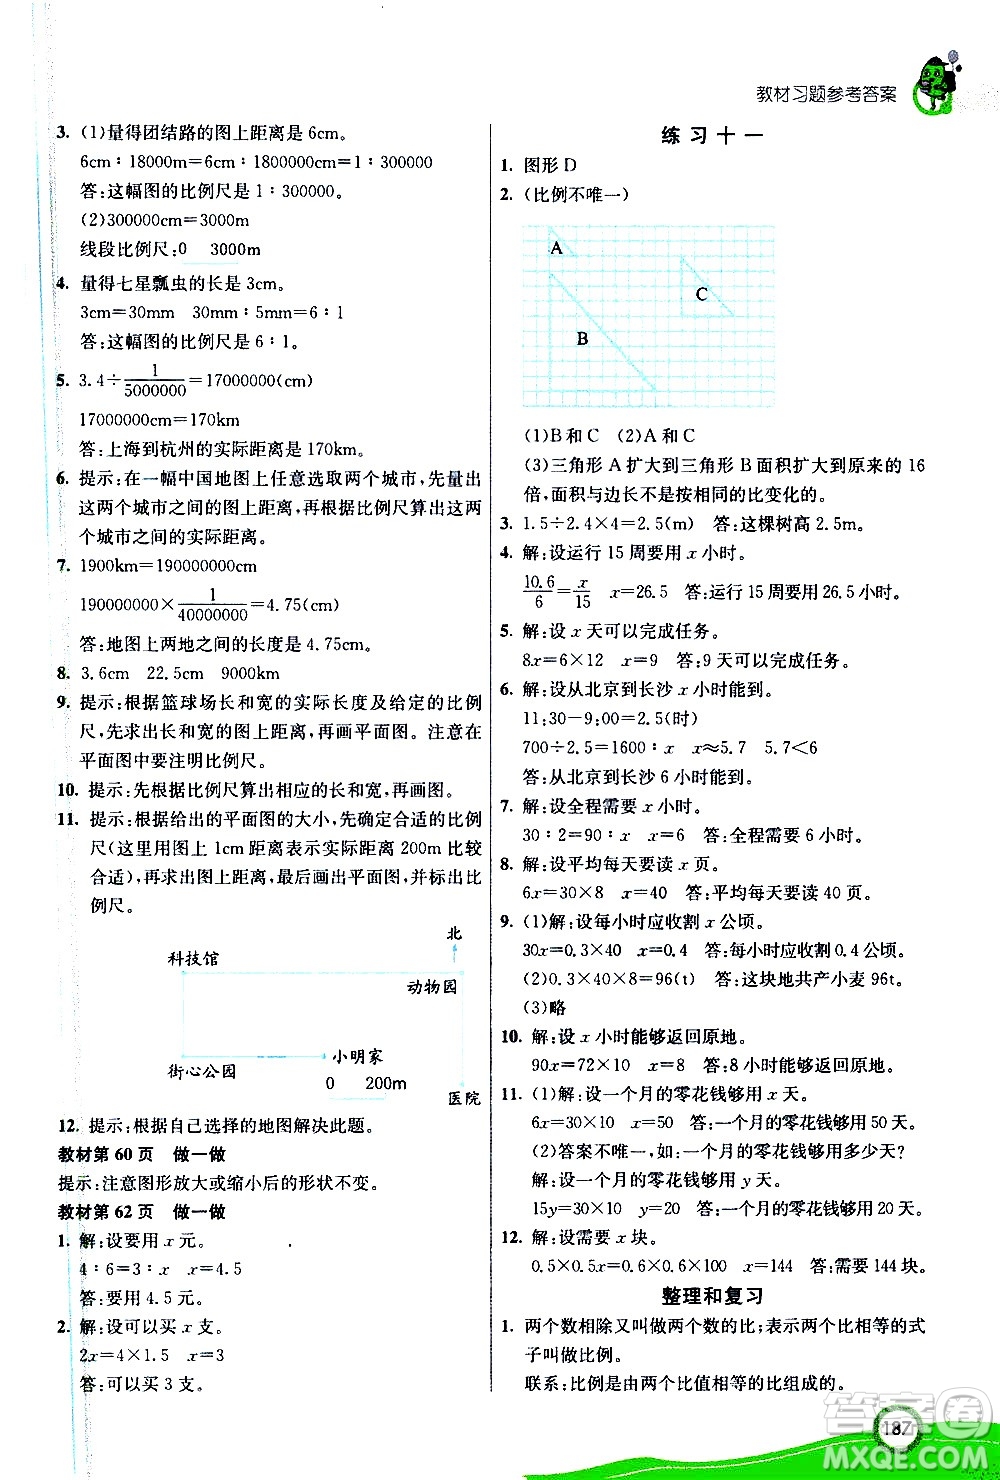 教材习题参考答案
3. (1)量得团结路的图上距离是6cm。
6cm∶18000m=6cm∶1800000cm=1∶300000
答:这幅图的比例尺是1∶300000。
(2)300000cm=3000m
线段比例尺:0 3000m
4. 量得七星瓢虫的长是3cm。
3cm=30mm 30mm∶5mm=6∶1
答:这幅图的比例尺是6∶1。
5. 3.4÷1/5000000=17000000(cm)
17000000cm=170km
答:上海到杭州的实际距离是170km。
6. 提示:在一幅中国地图上任意选取两个城市,先量出
这两个城市之间的图上距离,再根据比例尺算出这两
个城市之间的实际距离。
7. 1900km=190000000cm
190000000×1/40000000=4.75(cm)
答:地图上两地之间的长度是4.75cm。
8. 3.6cm 22.5cm 9000km
9. 提示:根据篮球场长和宽的实际长度及给定的比例
尺,先求出长和宽的图上距离,再画平面图。注意在
平面图中要注明比例尺。
10. 提示:先根据比例尺算出相应的长和宽,再画图。
11. 提示:根据给出的平面图的大小,先确定合适的比例
尺(这里用图上1cm距离表示实际距离200m比较
合适),再求出图上距离,最后画出平面图,并标出比
例尺。
北
科技馆
动物园
小明家
街心公园
0 200m
医院
12. 提示:根据自己选择的地图解决此题。
教材第60页 做一做
提示:注意图形放大或缩小后的形状不变。
教材第62页 做一做
1. 解:设要用x元。
4∶6=3∶x x=4.5
答:要用4.5元。
2. 解:设可以买x支。
2x=4×1.5 x=3
答:可以买3支。
练习十一
1. 图形D
2. (比例不唯一)
A
C
B
(1)B和C (2)A和C
(3)三角形A扩大到三角形B面积扩大到原来的16
倍,面积与边长不是按相同的比变化的。
3. 1.5÷2.4×4=2.5(m) 答:这棵树高2.5m。
4. 解:设运行15周要用x小时。
10.6/6=x/15 x=26.5 答:运行15周要用26.5小时。
5. 解:设x天可以完成任务。
8x=6×12 x=9 答:9天可以完成任务。
6. 解:设从北京到长沙x小时能到。
11:30-9:00=2.5(时)
700÷2.5=1600∶x x≈5.7 5.7<6
答:从北京到长沙6小时能到。
7. 解:设全程需要x小时。
30∶2=90∶x x=6 答:全程需要6小时。
8. 解:设平均每天要读x页。
6x=30×8 x=40 答:平均每天要读40页。
9. (1)解:设每小时应收割x公顷。
30x=0.3×40 x=0.4 答:每小时应收割0.4公顷。
(2)0.3×40×8=96(t) 答:这块地共产小麦96t。
(3)略
10. 解:设x小时能够返回原地。
90x=72×10 x=8 答:8小时能够返回原地。
11. (1)解:设一个月的零花钱够用x天。
6x=30×10 x=50 答:一个月的零花钱够用50天。
(2)答案不唯一,如:一个月的零花钱够用几天?
解:设一个月的零花钱够用y天。
15y=30×10 y=20 答:一个月的零花钱够用20天。
12. 解:设需要x块。
0.5×0.5x=0.6×0.6×100 x=144 答:需要144块。
整理和复习
1. 两个数相除又叫做两个数的比;表示两个比相等的式
子叫做比例。
联系:比例是由两个比值相等的比组成的。
187
答案圈
MXQE.COM